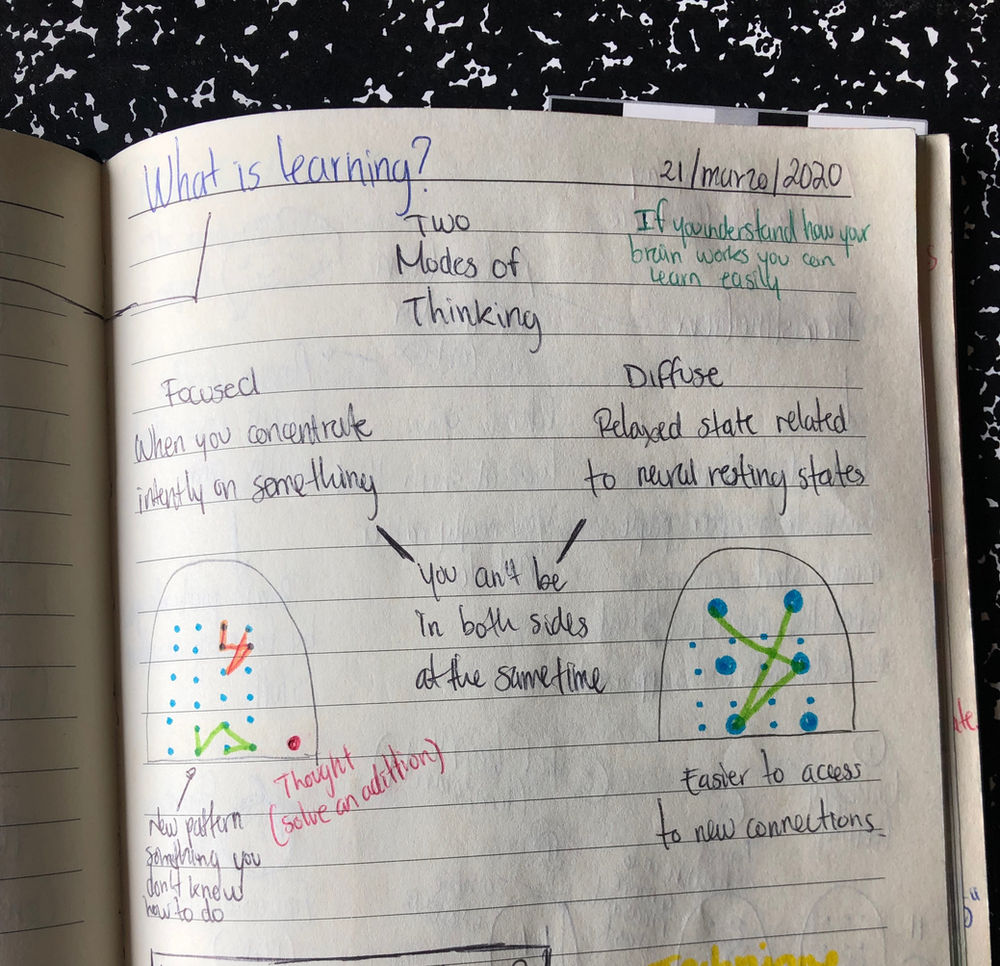 What is learning?
21/marzo/2020
Two
Modes of
Thinking
If you understand how your
brain works you can
learn easily
Focused
When you concentrate
intently on something
Diffuse
Relaxed state related
to neural resting states
you can't be
in both sides
at the same time
Thought
(solve an adittion)
New pattern
something you
don't knew
how to do
Easier to access
to new connections